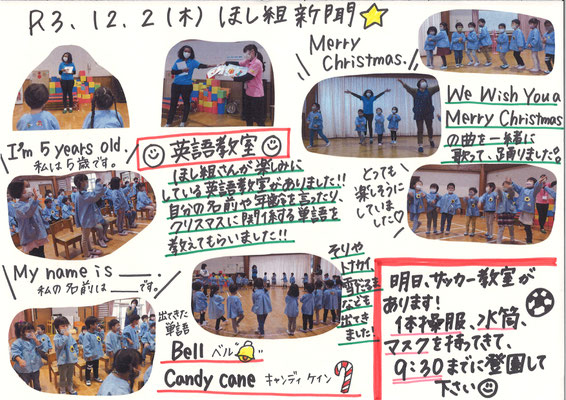 R3.12.2(木) ほし組新聞
Merry
Christmas.
We Wish You a
Merry Christmas
の曲を一緒に
歌って、踊りました♪
I'm 5 years old.
私は5歳です。
英語教室
ほし組さんが楽しみに
している英語教室がありました!!
自分の名前や年齢を言ったり、
クリスマスに関係する単語を
教えてもらいました!!
とっても
楽しそうに
していま
した♡
My name is ___.
私の名前は___です。
そりや
トナカイ、
雪だるま
なども
出てき
ました!
出てきた
単語
Bell ベル
Candy cane キャンディ ケイン
明日、サッカー教室が
あります!
体操服、水筒、
マスクを持ってきて、
9:30までに登園して
下さい